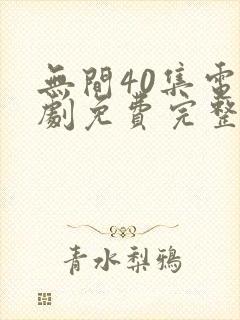 無間40集電
劇免費完整
青水梨鴉